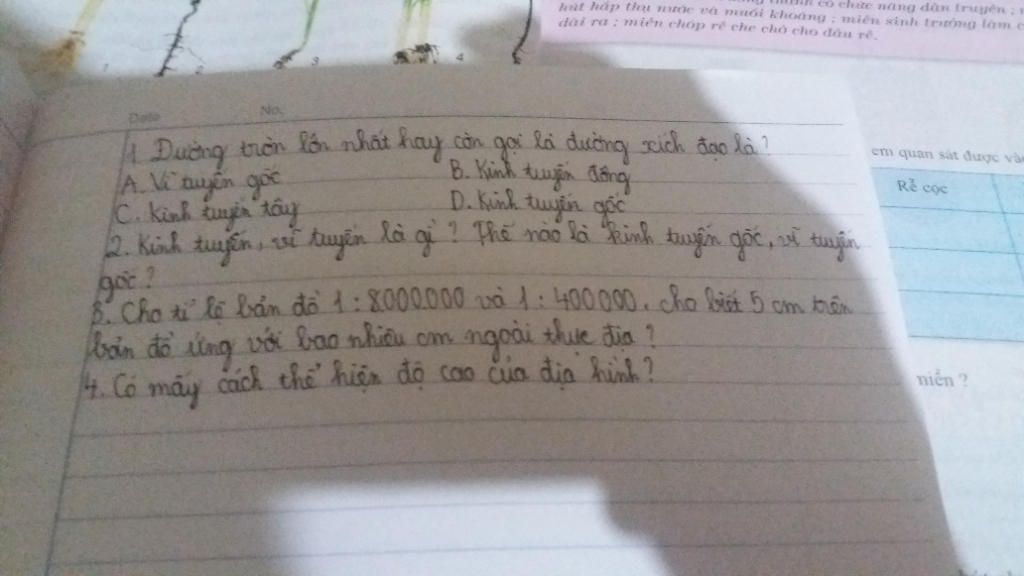 hút hấp thụ nước và muối khoáng ; miền sinh trưởng làm c
dài ra ; miền chóp rễ che chở cho đầu rễ.
1 2 3 4
Date No.
1 Đường tròn lớn nhất hay còn gọi là đường xích đạo là?
A. Vĩ tuyến gốc B. Kinh tuyến đông
C. Kinh tuyến tây D. Kinh tuyến gốc
2. Kinh tuyến, vĩ tuyến là gì? Thế nào là kinh tuyến gốc, vĩ tuyến
gốc?
3. Cho tỉ lệ bản đồ 1 : 8000000 và 1 : 400000. cho biết 5 cm trên
bản đồ ứng với bao nhiêu cm ngoài thực địa?
4. Có mấy cách thể hiện độ cao của địa hình?
em quan sát được và
Rễ cọc
miền ?